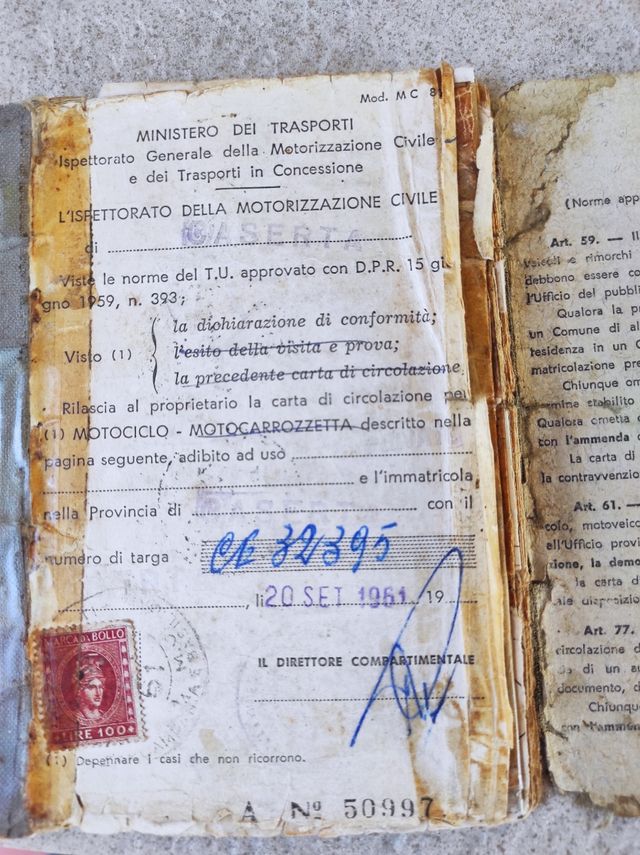 Mod. M C 8
MINISTERO DEI TRASPORTI
Ispettorato Generale della Motorizzazione Civile
e dei Trasporti in Concessione
L'ISPETTORATO DELLA MOTORIZZAZIONE CIVILE
di CASERTA
Viste le norme del T.U. approvato con D.P.R. 15 giu
gno 1959, n. 393;
Visto (1)
la dichiarazione di conformità;
l'esito della visita e prova;
la precedente carta di circolazione,
Rilascia al proprietario la carta di circolazione per
(1) MOTOCICLO - MOTOCARROZZETTA descritto nella
pagina seguente, adibito ad uso
e l'immatricola
nella Provincia di CASERTA con il
numero di targa CE 32395
, li 20 SET 1961 19
IL DIRETTORE COMPARTIMENTALE
MARCA DA BOLLO
LIRE 100
(1) Depennare i casi che non ricorrono.
A Nº 50997
(Norme app
Art. 59. — Il
veicoli e rimorchi
debbono essere co
l'Ufficio del pubbli
Qualora la p
un Comune di al
residenza in un C
matricolazione pre
Chiunque om
termine stabilito
Qualora ometta
con l'ammenda
La carta di
la contravvenzio
Art. 61. —
colo, motoveico
all'Ufficio provi
zione, la demo
la carta d
ale disposizio
Art. 77.
circolazione d
di un au
documento, d
Chiunque
con l'ammen